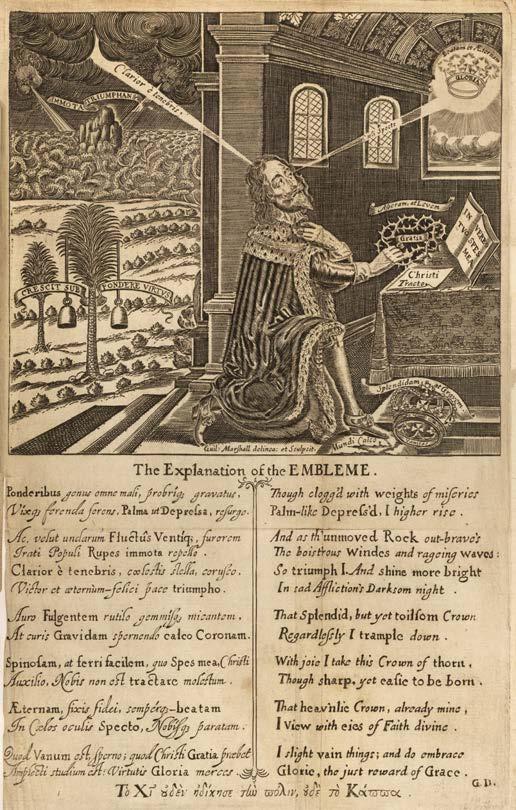 Clarior è tenebris
IMMOTA TRIUMPHANS
Beatam et Æternam
GLORIA
CRESCIT SUB PONDERE VIRTUS
Asperam, at Levem
Gratia
IN VERBO TUO SPES MEA
Christi Tracto
Splendidam, et at Gravem
Mundi Calco
Guil: Marshall delinea: et Sculpsit.
The Explanation of the EMBLEME.
Ponderibus genus omne mali, probriq; gravatus,
Vixq; ferenda ferens, Palma ut Depressa, resurgo.
Ac, velut undarum Fluctûs Ventiq;, furorem
Irati Populi Rupes immota repello.
Clarior è tenebris, cœlestis stella, corusco.
Victor et æternùm-felici pace triumpho.
Auro Fulgentem rutilo gemmisq; micantem,
At curis Gravidam spernendo calco Coronam.
Spinosam, at ferri facilem, quo Spes mea, Christi
Auxilio, Nobis non est tractare molestum.
Æternam, fixis fidei, sempérq;-beatam
In Cœlos oculis Specto, Nobisq; paratam.
Quod Vanum est, sperno; quod Christi Gratia præbet
Amplecti studium est: Virtutis Gloria merces.
Though clogg'd with weights of miseries
Palm-like Depress'd, I higher rise.
And as th'unmoved Rock out-brave's
The boistrous Windes and rageing waves:
So triumph I. And shine more bright
In sad Affliction's Darksom night.
That Splendid, but yet toilsom Crown
Regardlessly I trample down.
With joie I take this Crown of thorn,
Though sharp, yet easie to be born.
That heav'nlie Crown, already mine,
I View with eies of Faith divine.
I slight vain things; and do embrace
Glorie, the just reward of Grace.
G.D.
Το Χῖ ουδὲν ἠδίκησε τὴν πόλιν, ουδὲ το Κάππα.